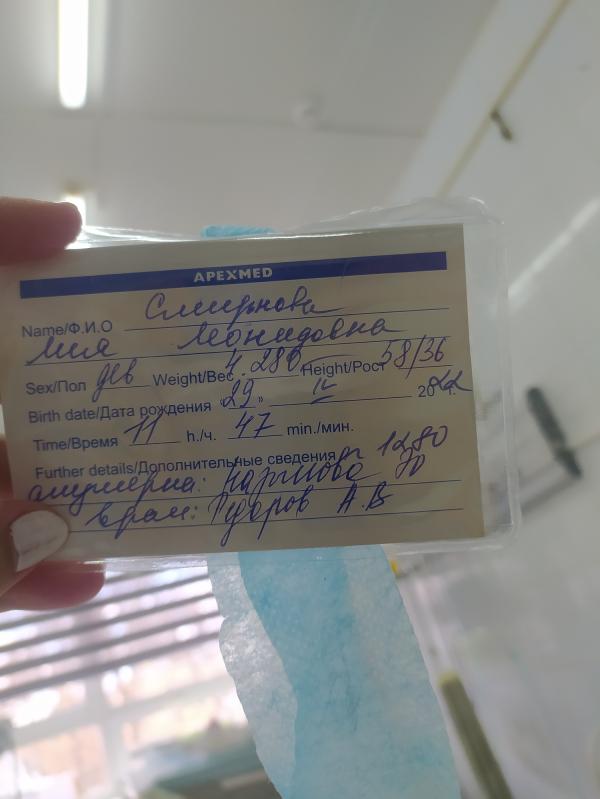 APEXMED
Name/Ф.И.О Смирнова
Мия Леонидовна
Sex/Пол дев Weight/Вес 4.280 Height/Рост 58/36
Birth date/Дата рождения "29" IV 2022г.
Time/Время 11 h./ч. 47 min./мин.
Further details/Дополнительные сведения 1280
акушерка:
врач: А.В